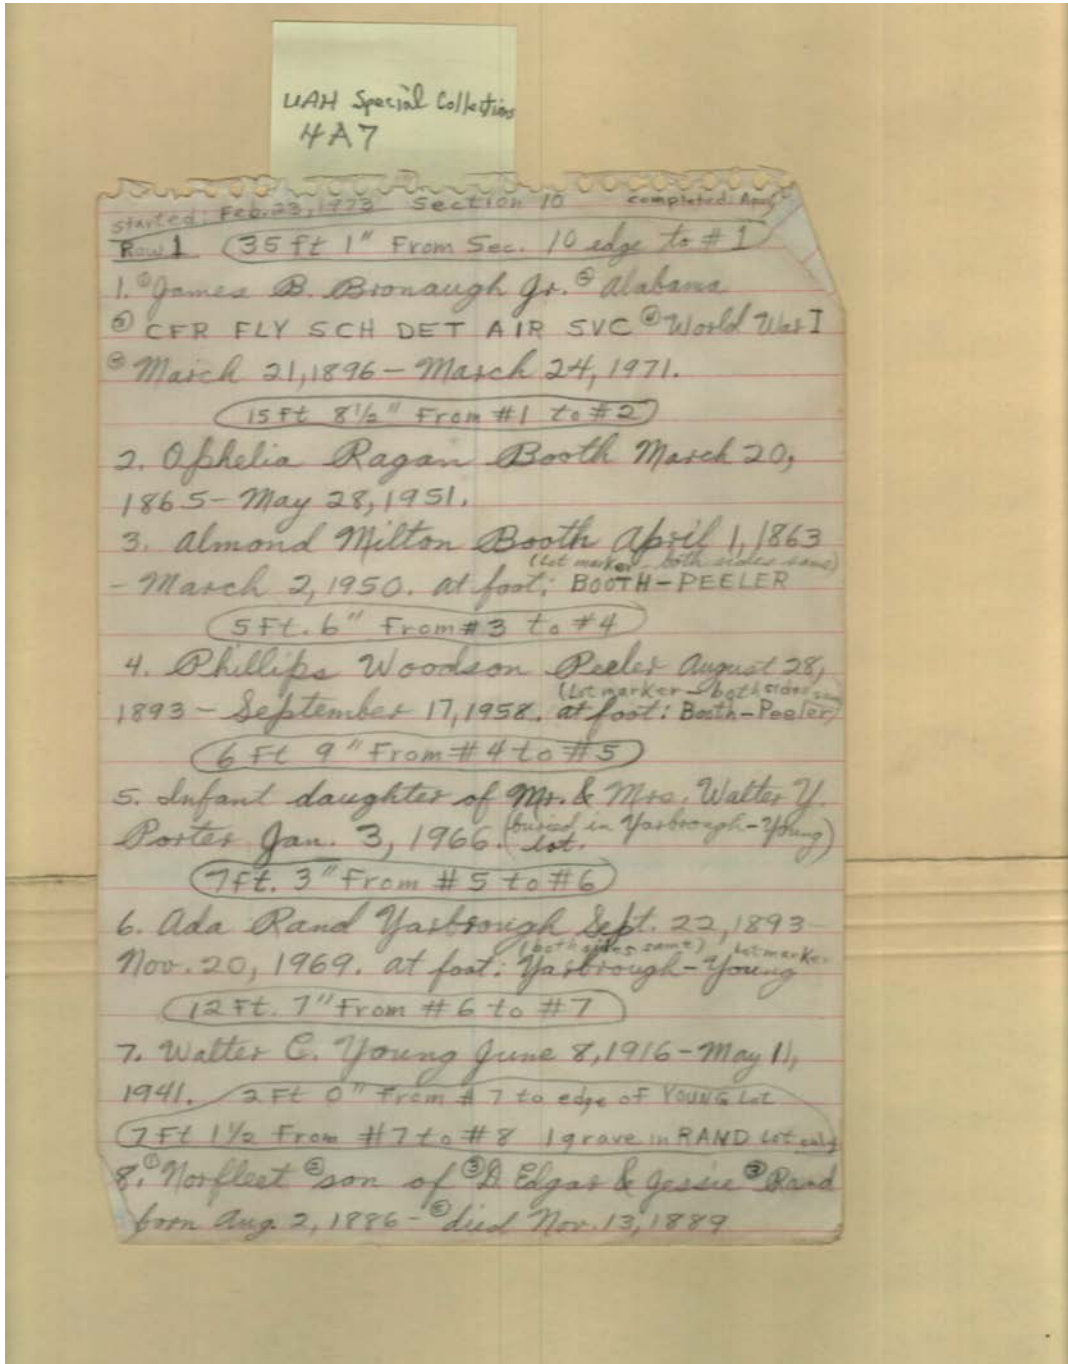 UAH Special Collections
4A7
started: Feb. 23, 1973 Section 10 completed:
Row 1 35 ft 1" From Sec. 10 edge to #1
1. ① James B. Bronaugh Jr. ② Alabama
③ CFR FLY SCH DET AIR SVC ④ World War I
⑤ March 21, 1896 - March 24, 1971.
15 Ft 8 1/2" From #1 to #2
2. Ophelia Ragan Booth March 20,
1865 - May 28, 1951.
3. Almond Milton Booth April 1, 1863
(Lot marker - both sides same)
- March 2, 1950. at foot: BOOTH-PEELER
5 Ft. 6" From #3 to #4
4. Phillips Woodson Peeler August 28,
(Lot marker - both sides same
1893 - September 17, 1958. at foot: Booth-Peeler)
6 Ft 9" From #4 to #5
5. Infant daughter of Mr. & Mrs. Walter Y.
Porter Jan. 3, 1966. (buried in Yarbrough-Young)
lot.
7 ft. 3" From #5 to #6
6. Ada Rand Yarbrough Sept. 22, 1893
(both sides same) Lot marker
Nov. 20, 1969. at foot: Yarbrough-Young
12 Ft. 7" From #6 to #7
7. Walter C. Young June 8, 1916 - May 11,
1941. 2 Ft 0" From #7 to edge of YOUNG Lot
7 Ft 1 1/2 From #7 to #8 1 grave in RAND Lot only
8. ① Norfleet ② son of ③ D. Edgar & Jessie ③ Rand
born Aug. 2, 1886 - ⑤ died Nov. 13, 1889